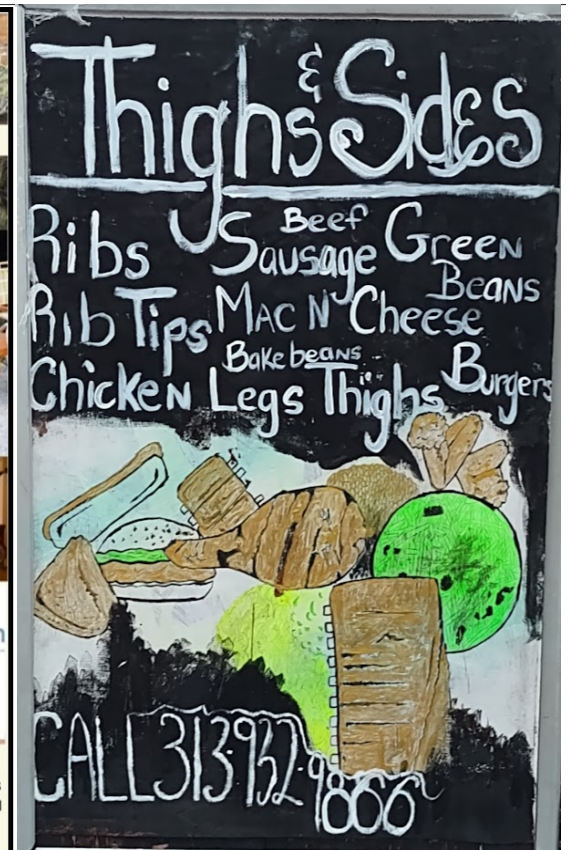 Thighs & Sides
Ribs Beef Sausage Green Beans
Rib Tips Mac N' Cheese
Bake beans
Chicken Legs Thighs Burgers
CALL 313-932-9866